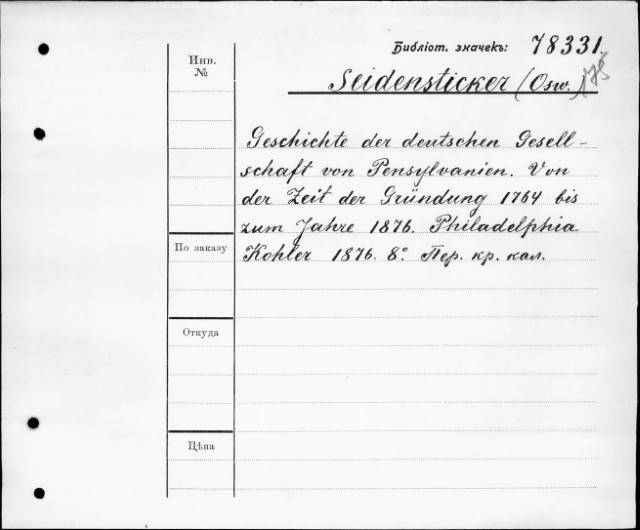 Библіот. значекъ: 78331.
Инв.
№
Seidensticker (Osw.)
Geschichte der deutschen Gesell-
schaft von Pensylvanien. Von
der Zeit der Gründung 1764 bis
zum Jahre 1876. Philadelphia
По заказу
Kohler 1876. 8°. Пер. кр. кал.
Откуда
Цѣна